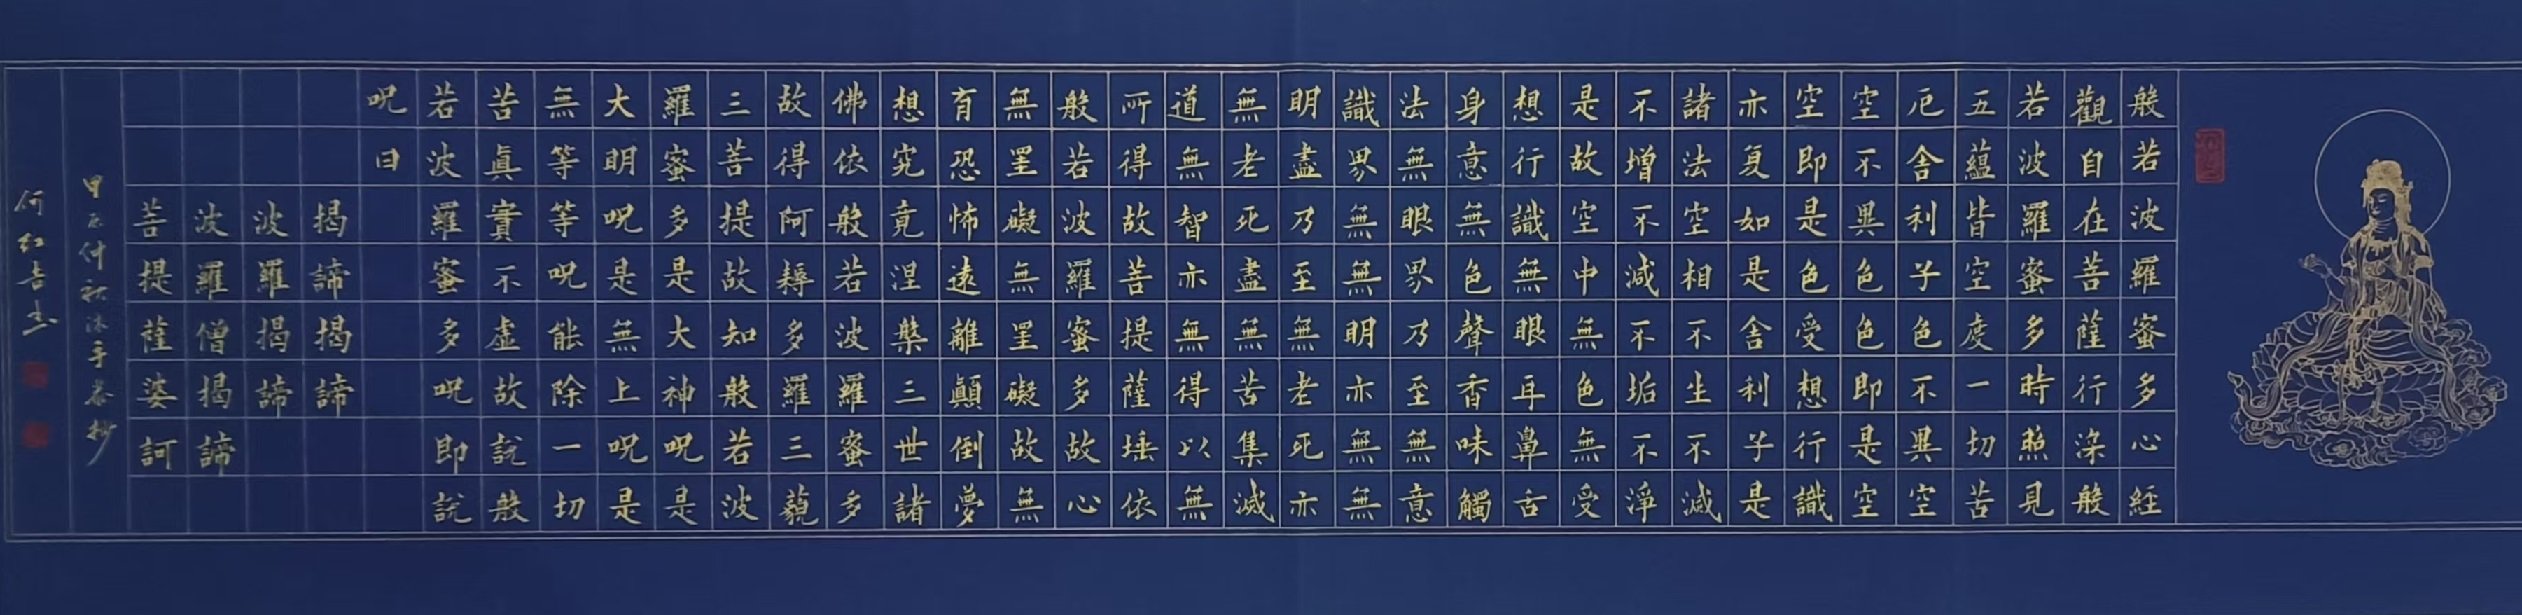 般若波羅蜜多心經
觀自在菩薩行深般
若波羅蜜多時照見
五蘊皆空度一切苦
厄舍利子色不異空
空不異色色即是空
空即是色受想行識
亦复如是舍利子是
諸法空相不生不滅
不增不減不垢不淨
是故空中無色無受
想行識無眼耳鼻舌
身意無色聲香味觸
法無眼界乃至無意
識界無無明亦無無
明盡乃至無老死亦
無老死盡無苦集滅
道無智亦無得以無
所得故菩提薩埵依
般若波羅蜜多故心
無罣礙無罣礙故無
有恐怖遠離顛倒夢
想究竟涅槃三世諸
佛依般若波羅蜜多
故得阿耨多羅三藐
三菩提故知般若波
羅蜜多是大神呪是
大明呪是無上呪是
無等等呪能除一切
苦真實不虛故說般
若波羅蜜多呪即說
呪曰
揭諦揭諦
波羅揭諦
波羅僧揭諦
菩提薩婆訶
甲辰仲秋沐手恭抄
何红吉书